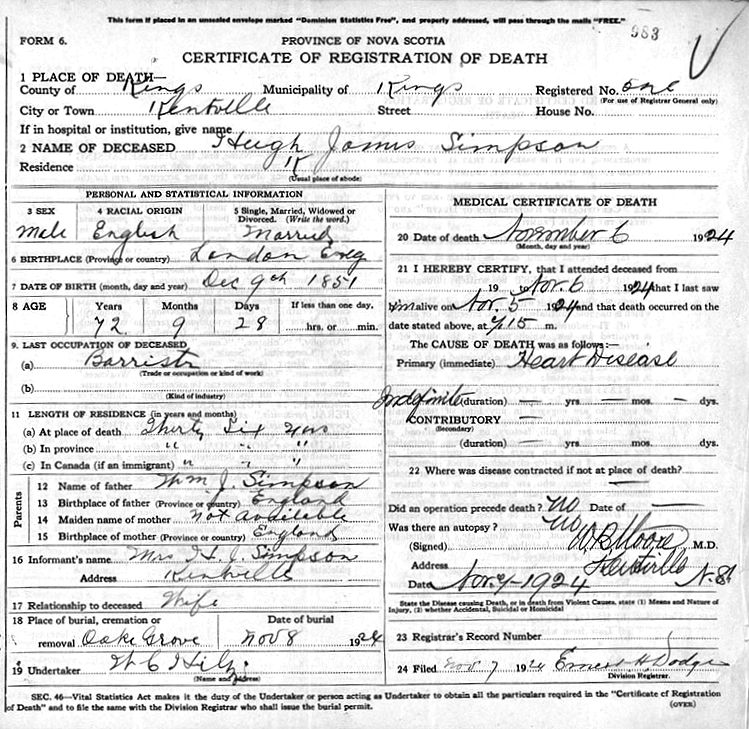 This form if placed in an unsealed envelope marked "Dominion Statistics Free", and properly addressed, will pass through the mails "FREE."
983
FORM 6.
PROVINCE OF NOVA SCOTIA
CERTIFICATE OF REGISTRATION OF DEATH
1 PLACE OF DEATH—
County of Kings Municipality of Kings Registered No. one
(For use of Registrar General only)
City or Town Kentville Street House No.
If in hospital or institution, give name
2 NAME OF DECEASED Hugh James Simpson
Residence
(Usual place of abode)
PERSONAL AND STATISTICAL INFORMATION
3 SEX 4 RACIAL ORIGIN 5 Single, Married, Widowed or Divorced. (Write the word.)
Male English Married
6 BIRTHPLACE (Province or country) London Eng
7 DATE OF BIRTH (month, day and year) Dec 9th 1851
8 AGE Years Months Days If less than one day.
72 9 28 hrs. or min.
9. LAST OCCUPATION OF DECEASED
(a) Barrister
(Trade or occupation or kind of work)
(b)
(Kind of industry)
11 LENGTH OF RESIDENCE (in years and months)
(a) At place of death Thirty Six years
(b) In province " " "
(c) In Canada (if an immigrant) " " "
Parents
12 Name of father Wm J. Simpson
13 Birthplace of father (Province or country) England
14 Maiden name of mother Not available
15 Birthplace of mother (Province or country) England
16 Informant's name Mrs H. J. Simpson
Address Kentville
17 Relationship to deceased Wife
18 Place of burial, cremation or removal Oake Grove
Date of burial Nov 8 1924
19 Undertaker W C
(Name and address)
MEDICAL CERTIFICATE OF DEATH
20 Date of death November 6 1924
(Month, day and year)
21 I HEREBY CERTIFY, that I attended deceased from
19 to Nov. 6 1924 that I last saw
him alive on Nov. 5 1924 and that death occurred on
date stated above, at 7.15 m.
The CAUSE OF DEATH was as follows:—
Primary (immediate) Heart Disease
Indefinite (duration) — yrs. — mos. — dys.
CONTRIBUTORY —
(Secondary)
(duration) — yrs. — mos. — dys.
22 Where was disease contracted if not at place of death?
—
Did an operation precede death? No Date of —
Was there an autopsy? no
(Signed) W.B. Moore M.D.
Address Kentville N.S.
Date Nov. 7-1924
State the Disease causing Death, or in death from Violent Causes, state (1) Means and Nature of Injury, (2) whether Accidental, Suicidal or Homicidal
23 Registrar's Record Number
24 Filed Nov 7 1924 Ernest H. Dodge
Division Registrar.
SEC. 46—Vital Statistics Act makes it the duty of the Undertaker or person acting as Undertaker to obtain all the particulars required in the "Certificate of Registration
of Death" and to file the same with the Division Registrar who shall issue the burial permit.
(OVER)